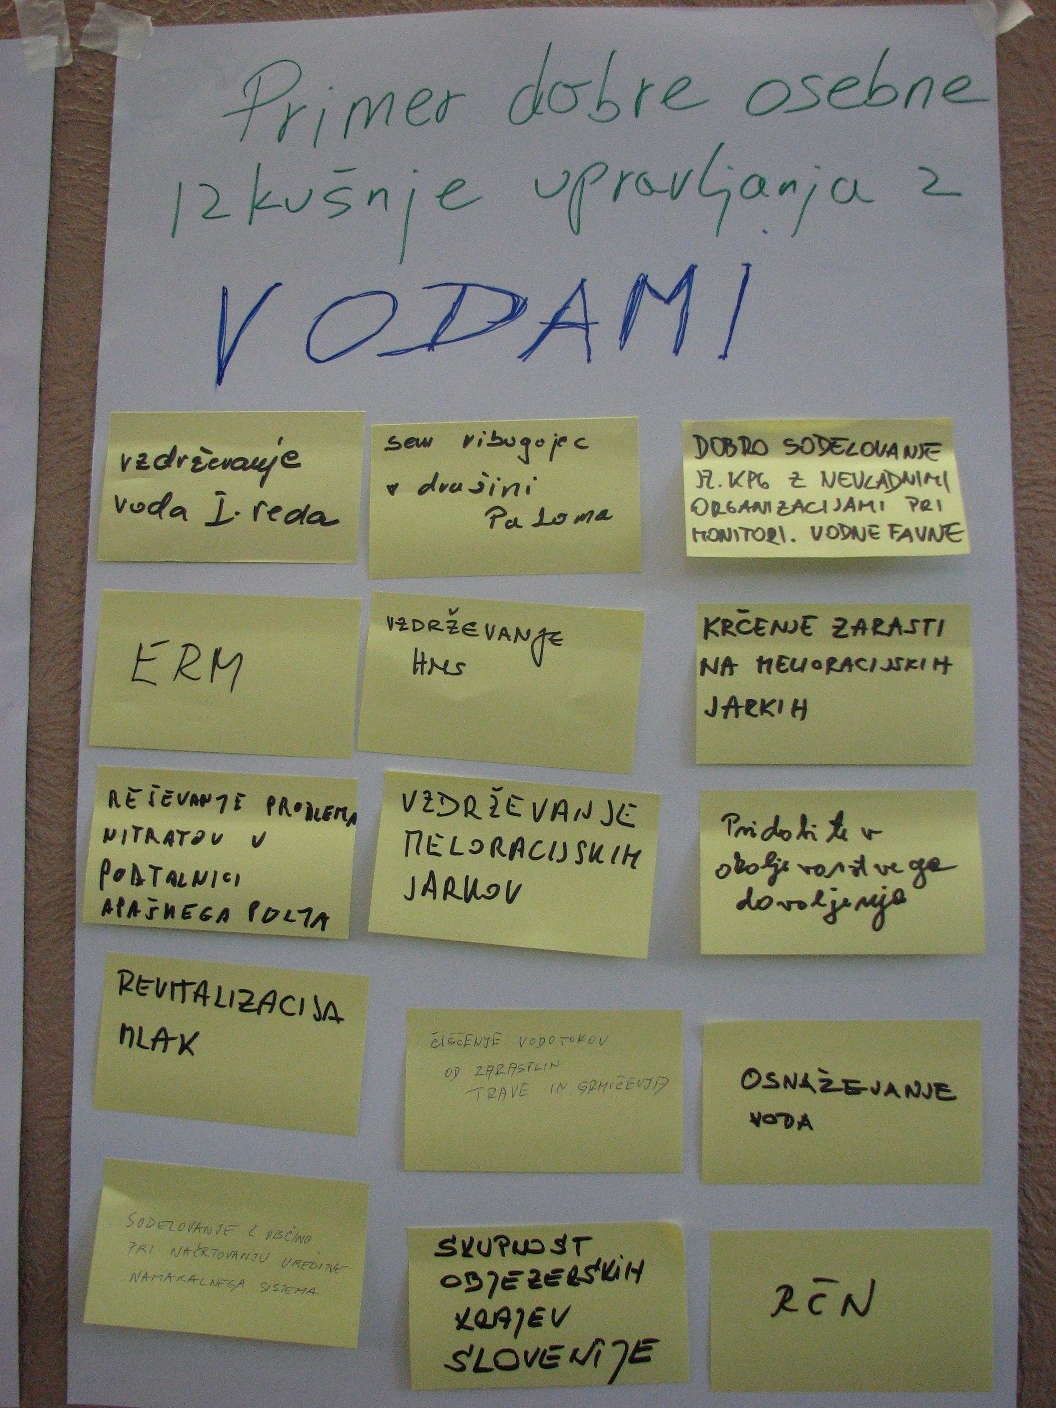 Primer dobre osebne
izkušnje upravljanja z
VODAMI
vzdrževanje
voda I. reda
sem ribogojec
v družini
Paloma
DOBRO SODELOVANJE
M. KPG Z NEVLADNIMI
ORGANIZACIJAMI PRI
MONITORI. VODNE FAVNE
ERM
VZDRŽEVANJE
HMS
KRČENJE ZARASTI
NA MELIORACIJSKIH
JARKIH
REŠEVANJE PROBLEMA
NITRATOV V
PODTALNICI
APAŠKEGA POLJA
VZDRŽEVANJE
MELORACIJSKIH
JARKOV
Pridobitev
okoljevarstvega
dovoljenja
REVITALIZACIJA
MLAK
ČIŠČENJE VODOTOKOV
OD ZARASTLIN
TRAVE IN GRMIČEVJA
OSNAŽEVANJE
VODA
SODELOVANJE Z OBČINO
PRI NAČRTOVANJU UREDITVE
NAMAKALNEGA SISTEMA
SKUPNOST
OBJEZERSKIH
KRAJEV
SLOVENIJE
RČN